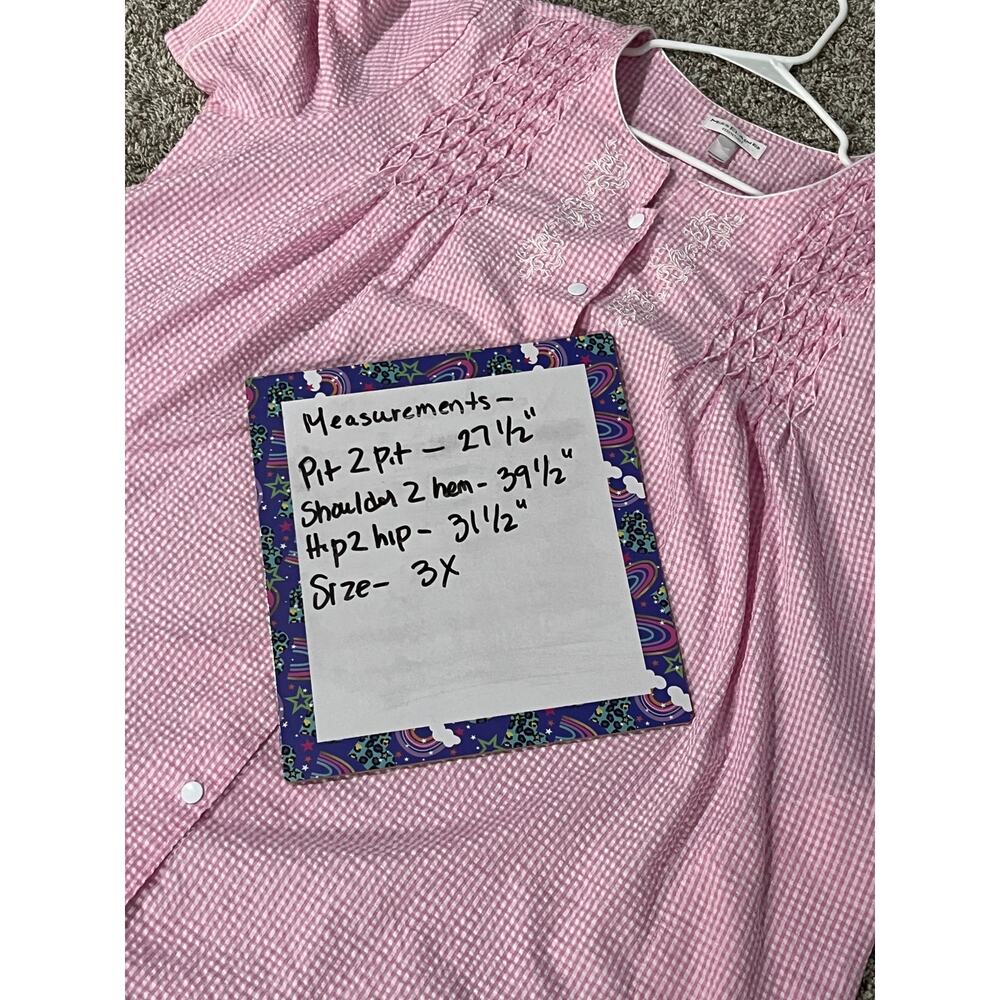 Measurements-
Pit 2 pit - 27 1/2"
Shoulder 2 hem - 39 1/2"
Hip 2 hip - 31 1/2"
Size - 3X